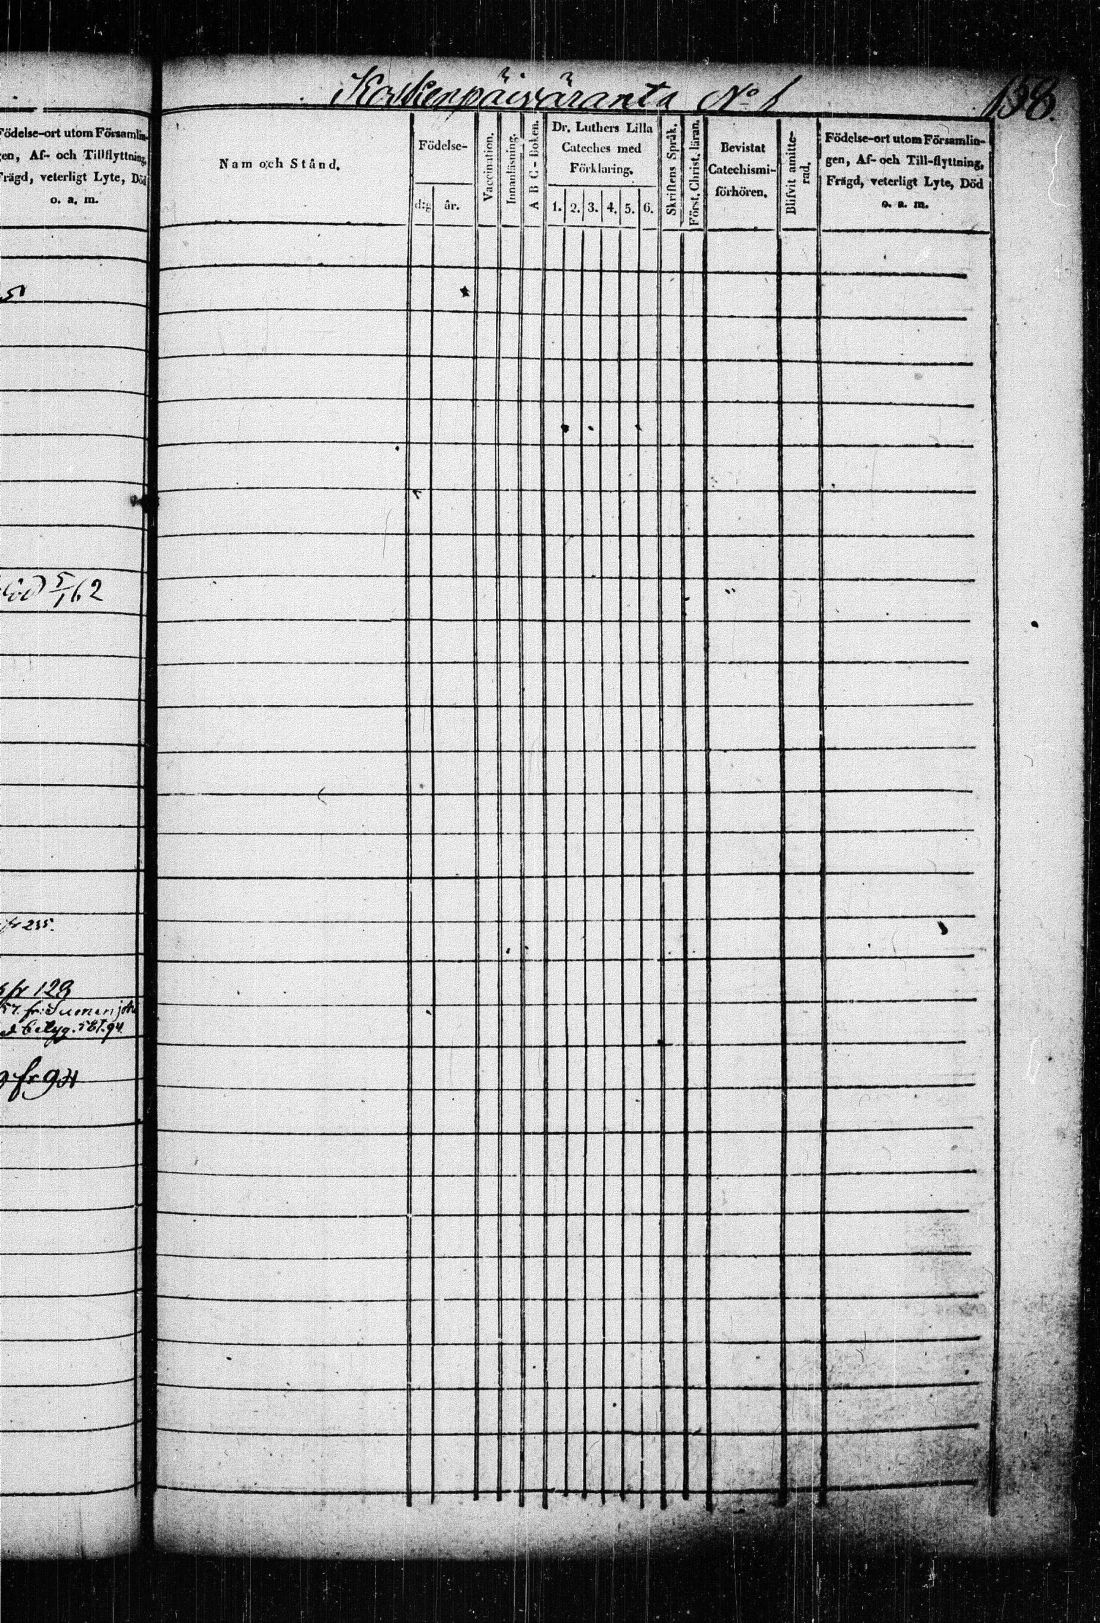 Koskenpäiväranta No 1
138.
Födelse-ort utom Församlin-
gen, Af- och Tillflyttning,
Frägd, veterligt Lyte, Död
o. a. m.
5
död 5/1 62
fr 255.
fr 129
57. fr.
betyg. 94.
fr 94
Nam och Stånd.
Födelse-
d:g år.
Vaccination.
Innanläsning.
A B C - Boken.
Dr. Luthers Lilla
Cateches med
Förklaring.
1. 2. 3. 4. 5. 6.
Skriftens Språk.
Först. Christ. läran.
Bevistat
Catechismi-
förhören.
Blifvit amitte-
rad.
Födelse-ort utom Församlin-
gen, Af- och Till-flyttning,
Frägd, veterligt Lyte, Död
o. a. m.